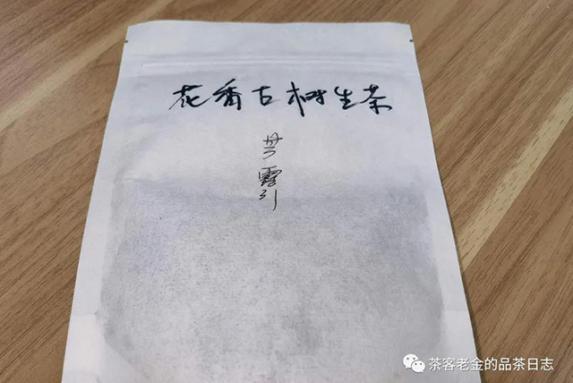 花香古树生茶
茶客老金的品茶日志